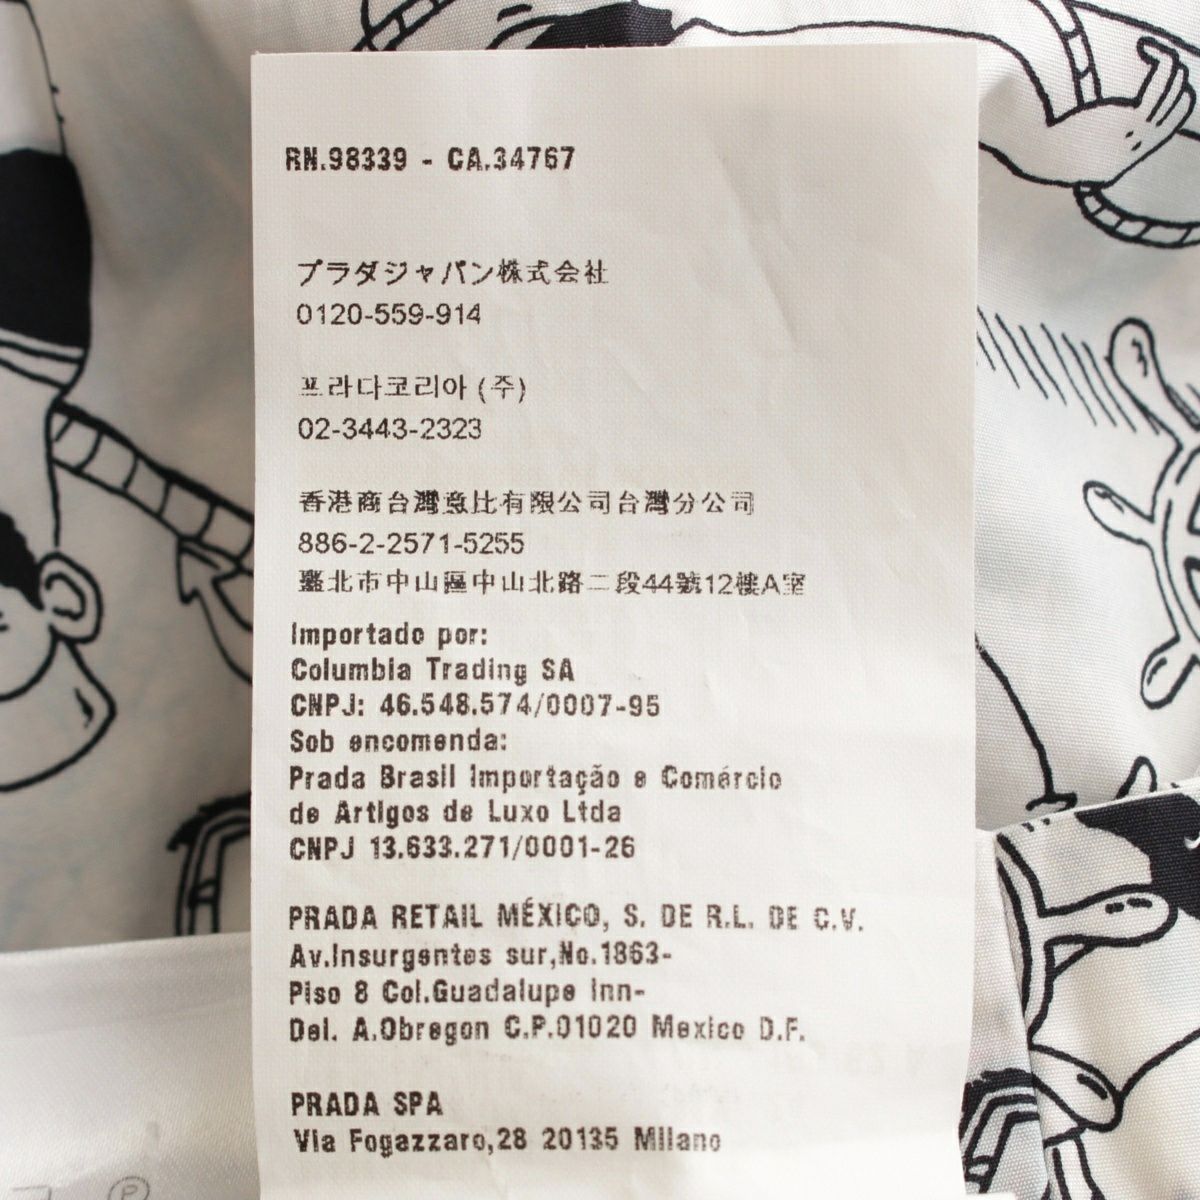 RN.98339 - CA.34767
プラダジャパン株式会社
0120-559-914
프라다코리아 (주)
02-3443-2323
香港商台灣意比有限公司台灣分公司
886-2-2571-5255
臺北市中山區中山北路二段44號12樓A室
Importado por:
Columbia Trading SA
CNPJ: 46.548.574/0007-95
Sob encomenda:
Prada Brasil Importação e Comércio
de Artigos de Luxo Ltda
CNPJ 13.633.271/0001-26
PRADA RETAIL MÉXICO, S. DE R.L. DE C.V.
Av.Insurgentes sur,No.1863-
Piso 8 Col.Guadalupe Inn-
Del. A.Obregon C.P.01020 Mexico D.F.
PRADA SPA
Via Fogazzaro,28 20135 Milano
Ⓟ